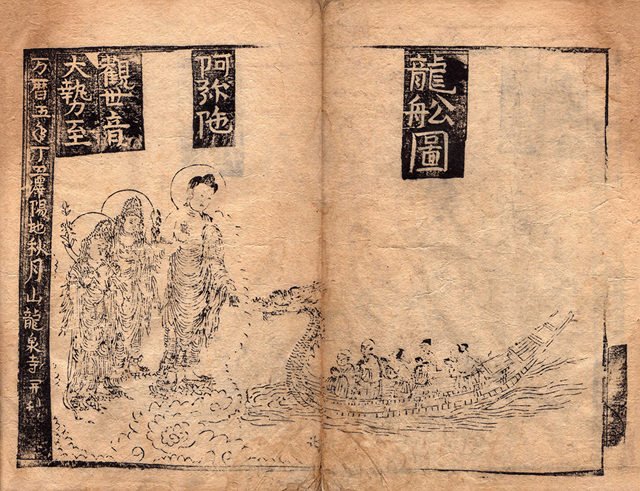 龍舩圖
阿弥陁
觀世音
大勢至
万暦五年丁丑潭陽地秋月山龍泉寺